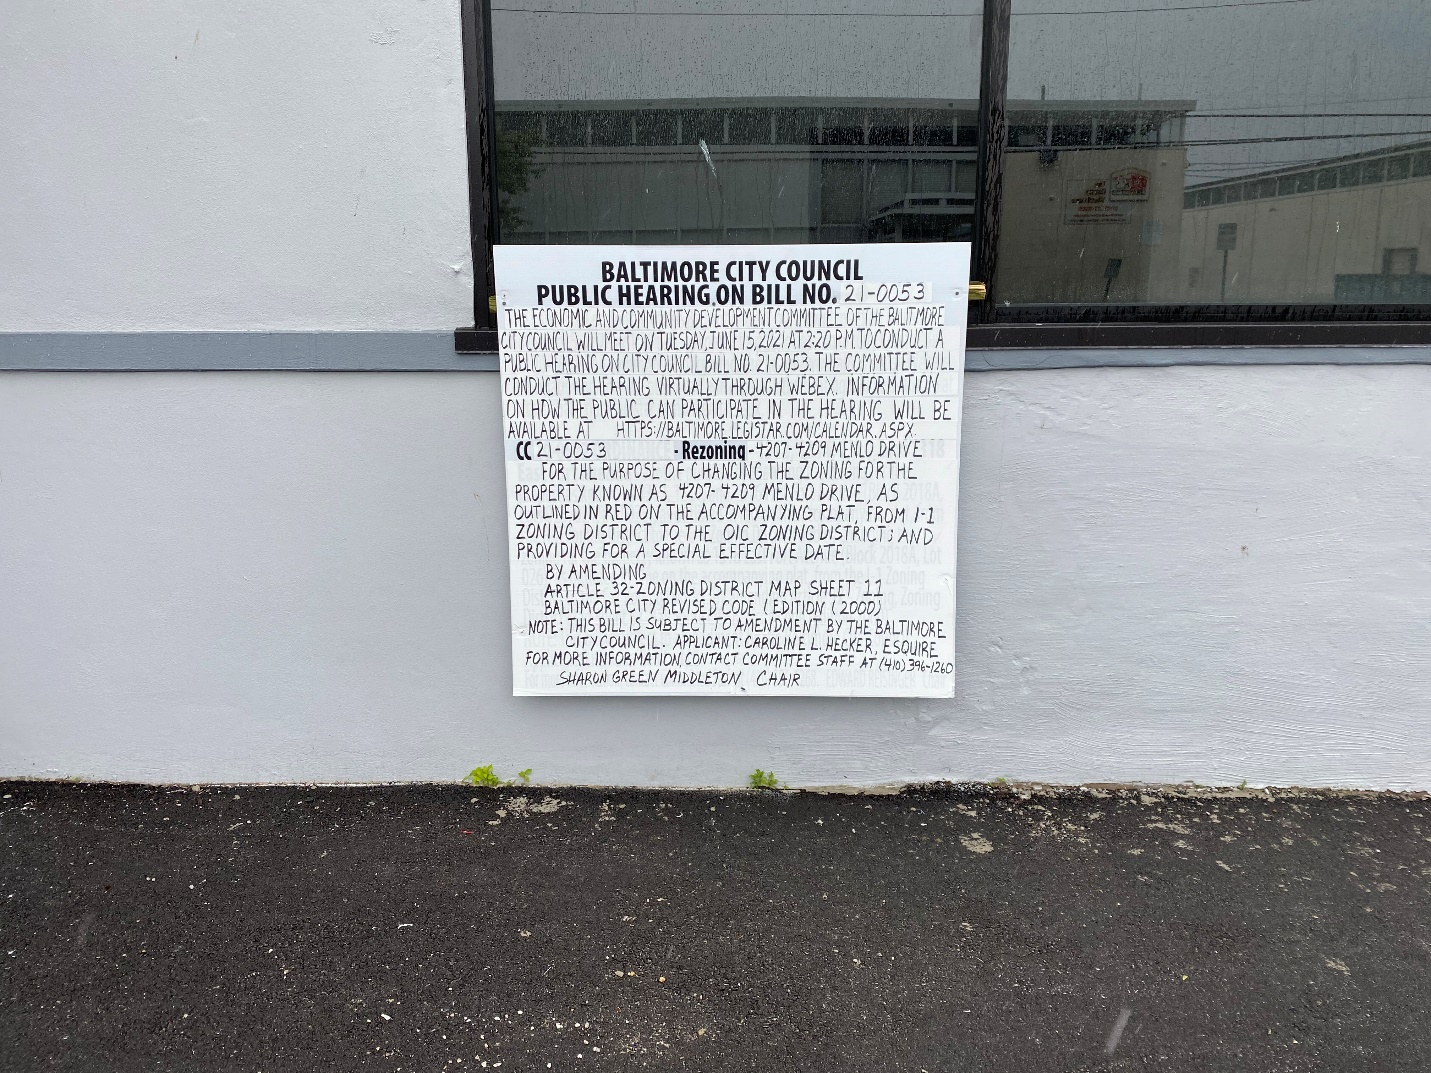 BALTIMORE CITY COUNCIL
PUBLIC HEARING ON BILL NO. 21-0053
THE ECONOMIC AND COMMUNITY DEVELOPMENT COMMITTEE OF THE BALITMORE
CITY COUNCIL WILL MEET ON TUESDAY, JUNE 15, 2021 AT 2:20 P.M. TO CONDUCT A
PUBLIC HEARING ON CITY COUNCIL BILL NO. 21-0053. THE COMMITTEE WILL
CONDUCT THE HEARING VIRTUALLY THROUGH WEBEX. INFORMATION
ON HOW THE PUBLIC CAN PARTICIPATE IN THE HEARING WILL BE
AVAILABLE AT HTTPS://BALTIMORE.LEGISTAR.COM/CALENDAR.ASPX.
CC 21-0053 - Rezoning - 4207-4209 MENLO DRIVE
FOR THE PURPOSE OF CHANGING THE ZONING FOR THE
PROPERTY KNOWN AS 4207-4209 MENLO DRIVE, AS
OUTLINED IN RED ON THE ACCOMPANYING PLAT, FROM I-1
ZONING DISTRICT TO THE OIC ZONING DISTRICT; AND
PROVIDING FOR A SPECIAL EFFECTIVE DATE.
BY AMENDING
ARTICLE 32-ZONING DISTRICT MAP SHEET 11
BALTIMORE CITY REVISED CODE (EDITION (2000)
NOTE: THIS BILL IS SUBJECT TO AMENDMENT BY THE BALTIMORE
CITY COUNCIL. APPLICANT: CAROLINE L. HECKER, ESQUIRE
FOR MORE INFORMATION, CONTACT COMMITTEE STAFF AT (410) 396-1260
SHARON GREEN MIDDLETON, CHAIR